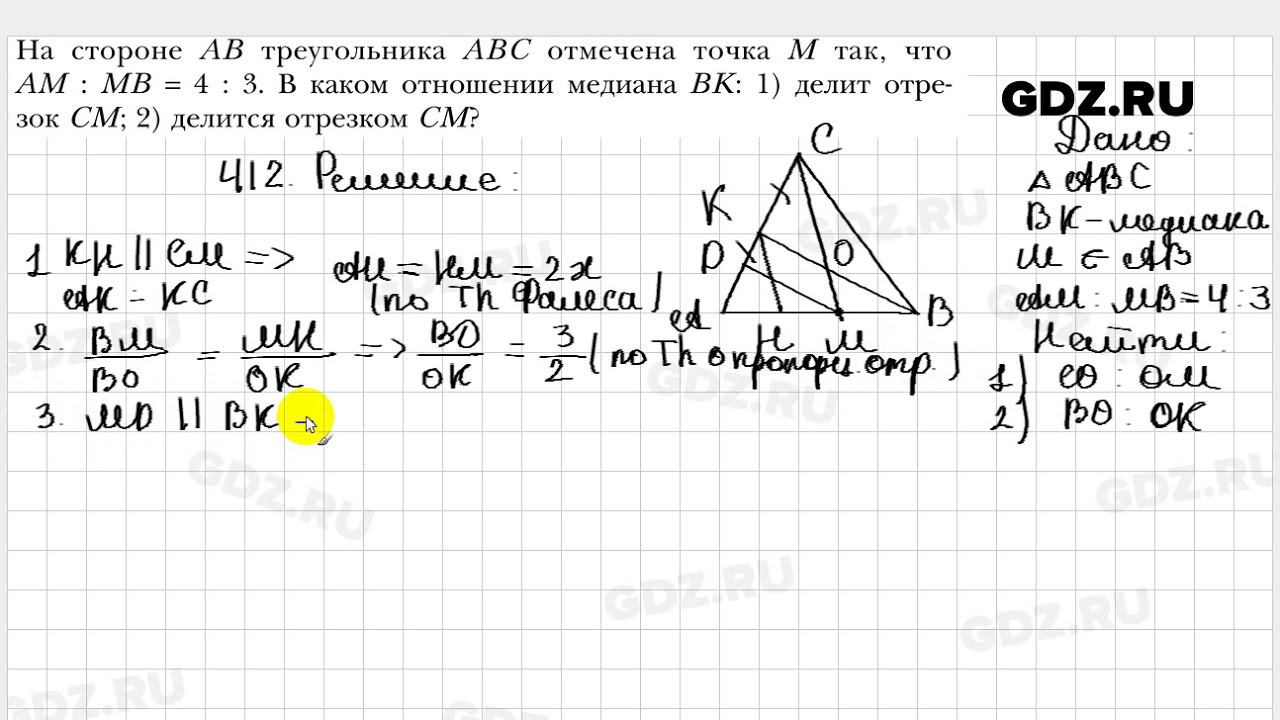 На стороне AB треугольника ABC отмечена точка M так, что
AM : MB = 4 : 3. В каком отношении медиана BK: 1) делит отре-
зок CM; 2) делится отрезком CM?
GDZ.RU
412. Решение:
Дано:
△ ABC
BK - медиана
M ∈ AB
AM : MB = 4 : 3
Найти:
1) CO : OM
2) BO : OK
C
K
D
O
A
H
M
B
1 KH || CM => AH = HM = 2x
AK = KC (по Th Фалеса)
2. BM/BO = MH/OK => BO/OK = 3/2 (по Th о пропорц. отр.)
3. MD || BK
GDZ.RU
GDZ.RU
GDZ.RU
GDZ.RU
GDZ.RU
GDZ.RU
GDZ.RU
GDZ.RU
GDZ.RU